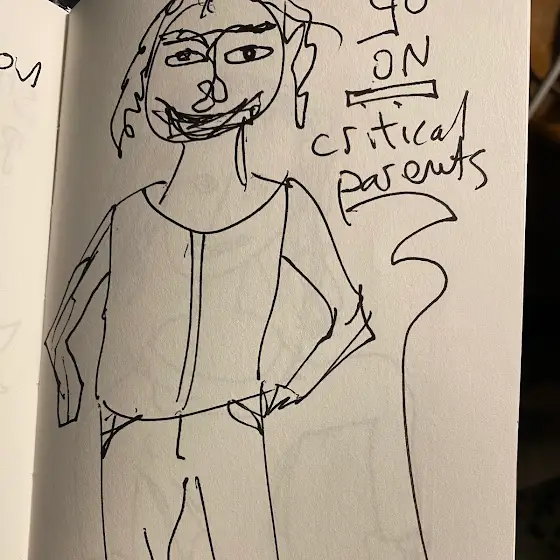 go
ON
critical
parents